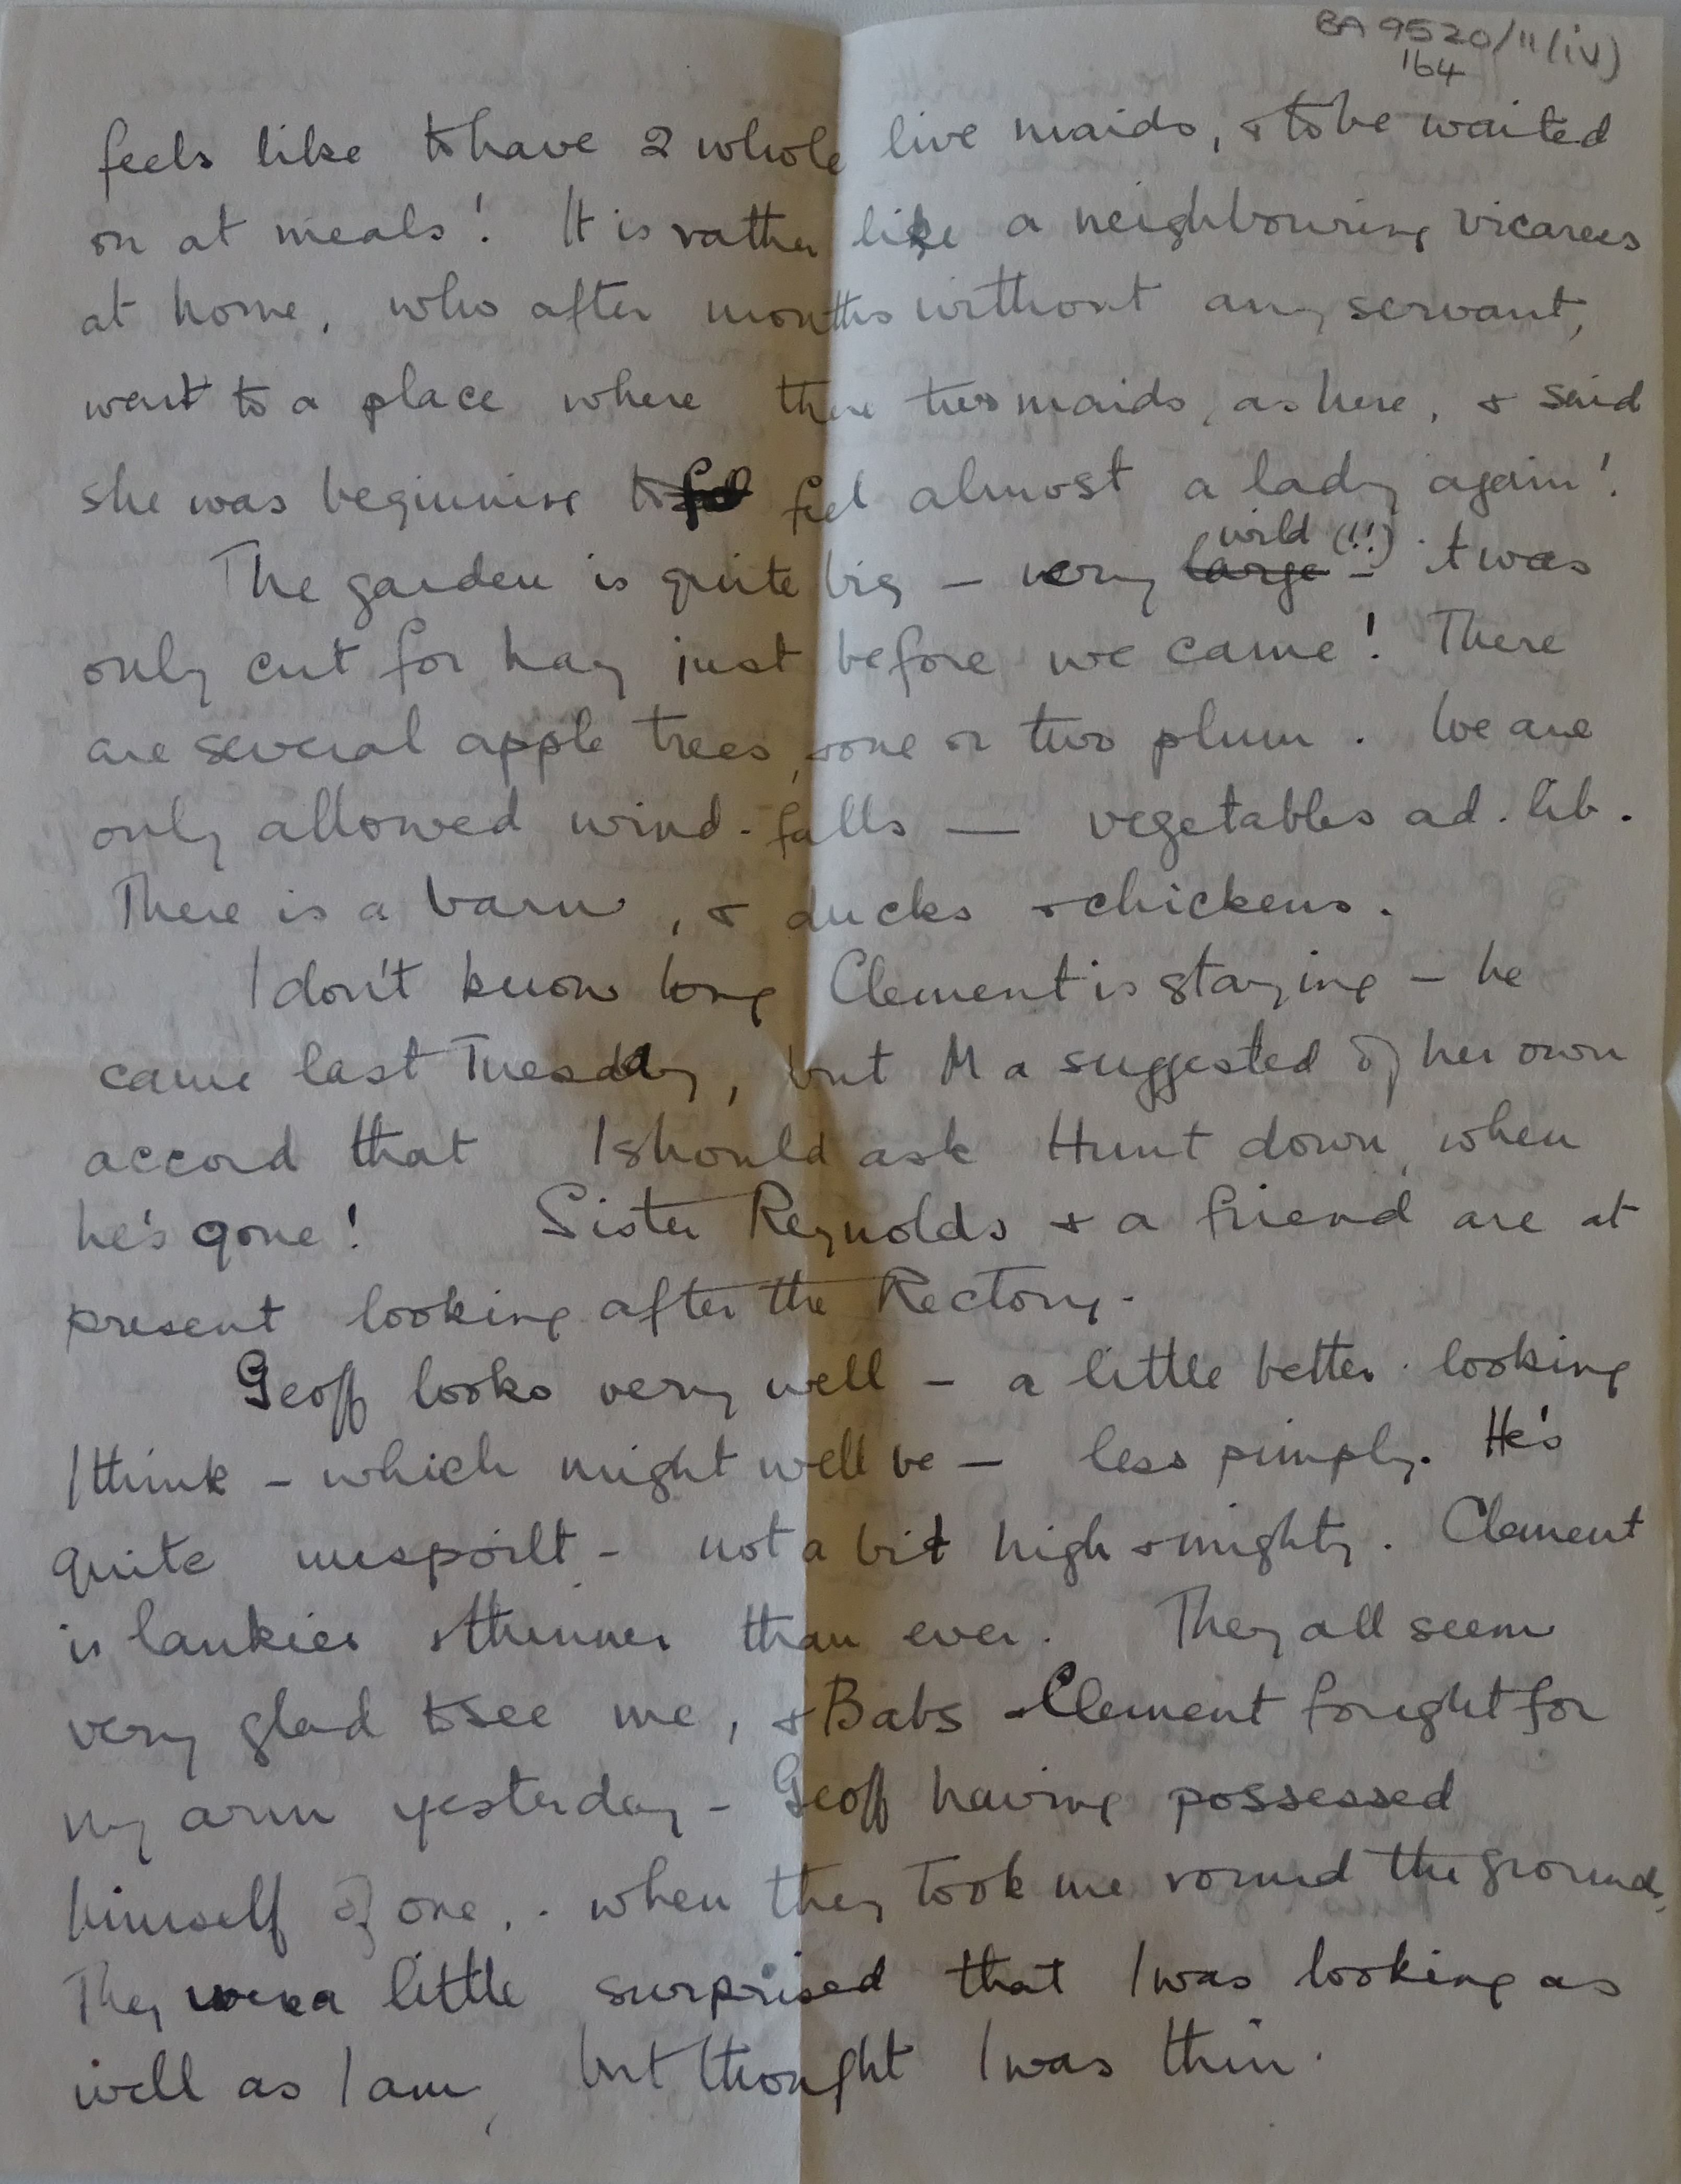 BA 9520/11/(iv)
164
feels like to have 2 whole live maids, & to be waited
on at meals! It is rather like a neighbouring vicaress
at home, who after months without any servant,
went to a place where there two maids, as here, & said
she was beginning to feel feel almost a lady again!
wild (!!)
The garden is quite big – very large – it was
only cut for hay just before we came! There
are several apple trees, & one or two plum. We are
only allowed wind-falls — vegetables ad. lib.
There is a barn, & ducks & chickens.
I don't know long Clement is staying – he
came last Tuesday, but Ma suggested of her own
accord that I should ask Hunt down, when
he's gone! Sister Reynolds & a friend are at
present looking after the Rectory.
Geoff looks very well – a little better looking
I think – which might well be — less pimply. He's
quite unspoilt – not a bit high & mighty. Clement
is lankier & thinner than ever. They all seem
very glad to see me, & Babs & Clement fought for
my arm yesterday – Geoff having possessed
himself of one, . when they took me round the grounds.
They were a little surprised that I was looking as
well as I am, but thought I was thin.